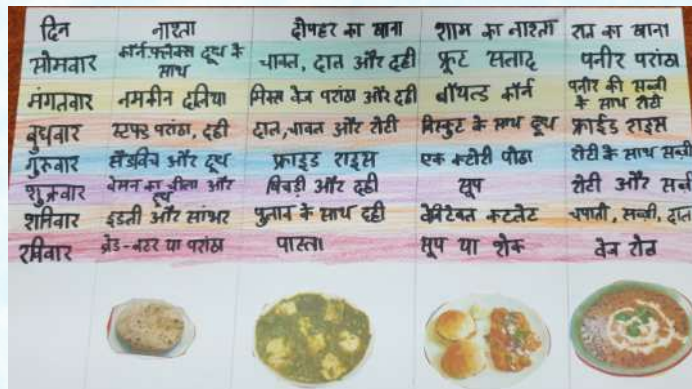 दिन नाश्ता दोपहर का खाना शाम का नाश्ता रात का खाना
सोमवार कॉर्न.फ़्लेक्स दूध के साथ चावल, दाल और दही फ्रूट सलाद पनीर परांठा
मंगलवार नमकीन दलिया मिक्स वेज परांठा और दही बॉयल्ड कॉर्न पनीर की सब्जी के साथ रोटी
बुधवार स्टफ्ड परांठा, दही दाल, चावल और रोटी बिस्कुट के साथ दूध फ्राईड राइस
गुरुवार सैंडविच और दूध फ्राइड राइस एक कटोरी पोहा रोटी के साथ सब्जी
शुक्रवार बेसन का चीला और दूध खिचड़ी और दही सूप रोटी और सब्जी
शनिवार इडली और सांभर पुलाव के साथ दही वेजिटेबल कटलेट चपाती, सब्जी, दाल
रविवार ब्रेड-बटर या परांठा पास्ता सूप या शेक वेज रोल